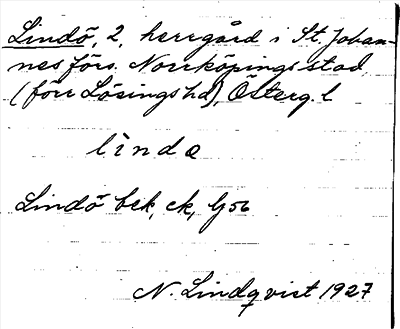 Lindö, 2, herrgård i St. Johan-
nes förs. Norrköpings stad
(förr Lösings hd), Österg. l
lìndo
Lindö bek, ck, Gg 56
N. Lindqvist 1927